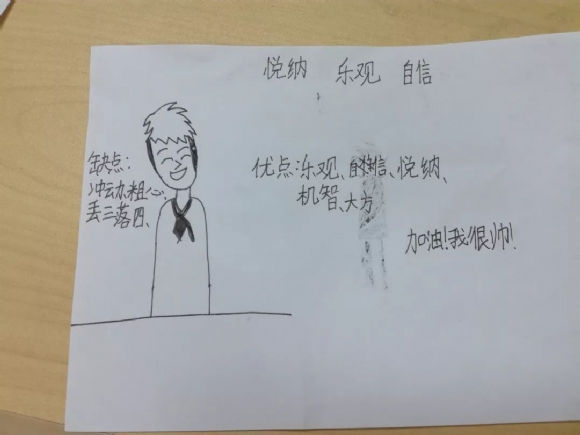 悦纳 乐观 自信
缺点:
冲动、粗心、
丢三落四、
优点:乐观、自信、悦纳、
机智、大方
加油!我很帅!